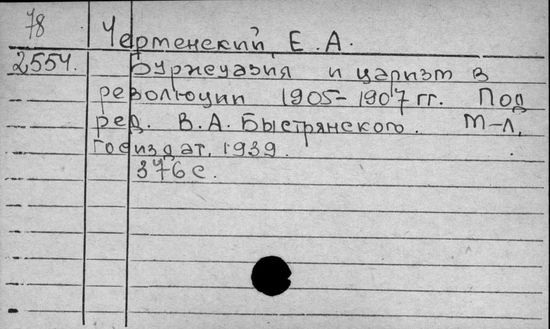 78
Черменский, Е.А.
2554.
Буржуазия и царизм в
революции 1905-1907 гг. Под
ред. В.А.Быстрянского. М-Л,
Госиздат, 1939.
376 с.